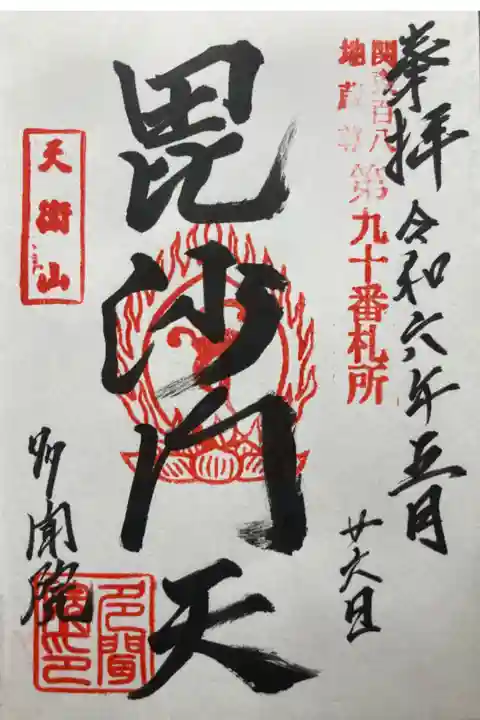 奉拝 令和六年五月
廿六日
関東百八
地蔵尊
第九十番札所
毘沙門天
天衛山
多聞院